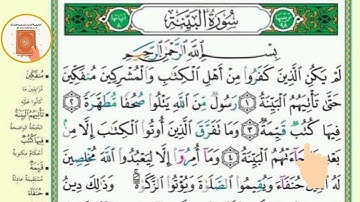 سُورَةُ الْبَيِّنَةِ
بِسْمِ اللَّهِ الرَّحْمَٰنِ الرَّحِيمِ
لَمْ يَكُنِ الَّذِينَ كَفَرُوا مِنْ أَهْلِ الْكِتَٰبِ وَالْمُشْرِكِينَ مُنفَكِّينَ
حَتَّىٰ تَأْتِيَهُمُ الْبَيِّنَةُ ١ رَسُولٌ مِّنَ اللَّهِ يَتْلُوا صُحُفًا مُّطَهَّرَةً ٢
فِيهَا كُتُبٌ قَيِّمَةٌ ٣ وَمَا تَفَرَّقَ الَّذِينَ أُوتُوا الْكِتَٰبَ إِلَّا مِن
بَعْدِ مَا جَاءَتْهُمُ الْبَيِّنَةُ ٤ وَمَا أُمِرُوا إِلَّا لِيَعْبُدُوا اللَّهَ مُخْلِصِينَ
لَهُ الدِّينَ حُنَفَاءَ وَيُقِيمُوا الصَّلَوٰةَ وَيُؤْتُوا الزَّكَوٰةَ وَذَٰلِكَ دِينُ
مُنفَكِّينَ
تَأْتِيَهُمُ الْبَيِّنَةُ
الحجة الواضحة
فِيهَا كُتُبٌ
قَيِّمَةٌ
حُنَفَاءَ